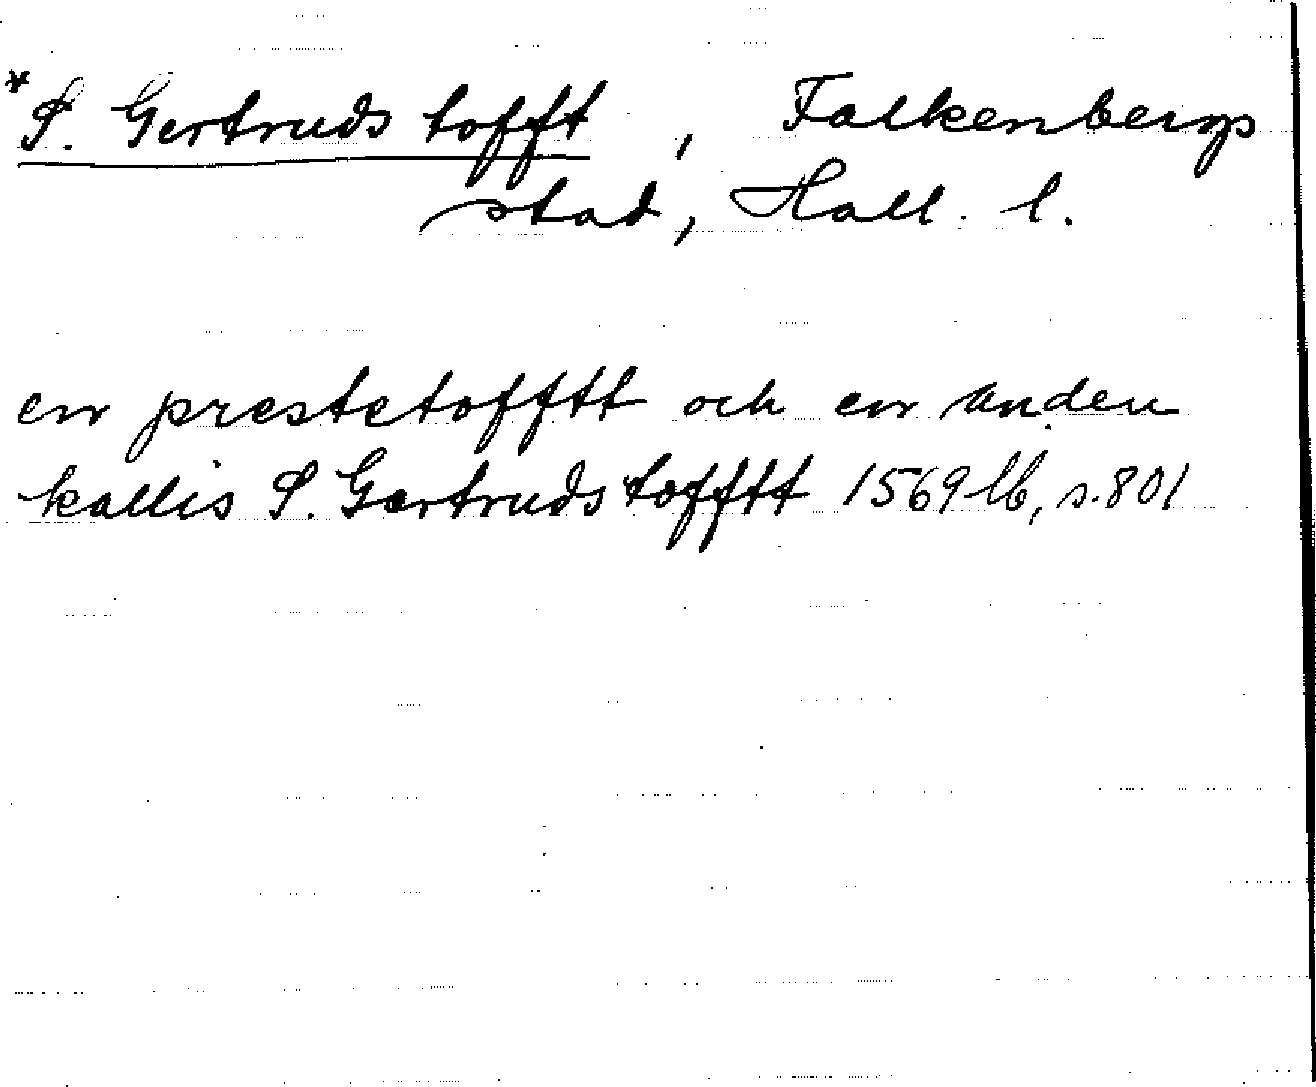 *S. Gertruds tofft, Falkenbergs
stad, Hall. l.
en prestetofftt och en anden
kallis S. Gertruds tofftt 1569 lb, s. 801